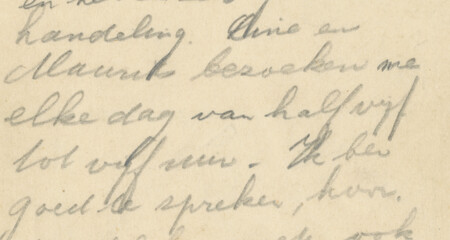 en
handeling. Line en
Maurits bezoeken me
elke dag van half vijf
tot vijf uur. Ik ben
goed te spreken, hoor.
ook